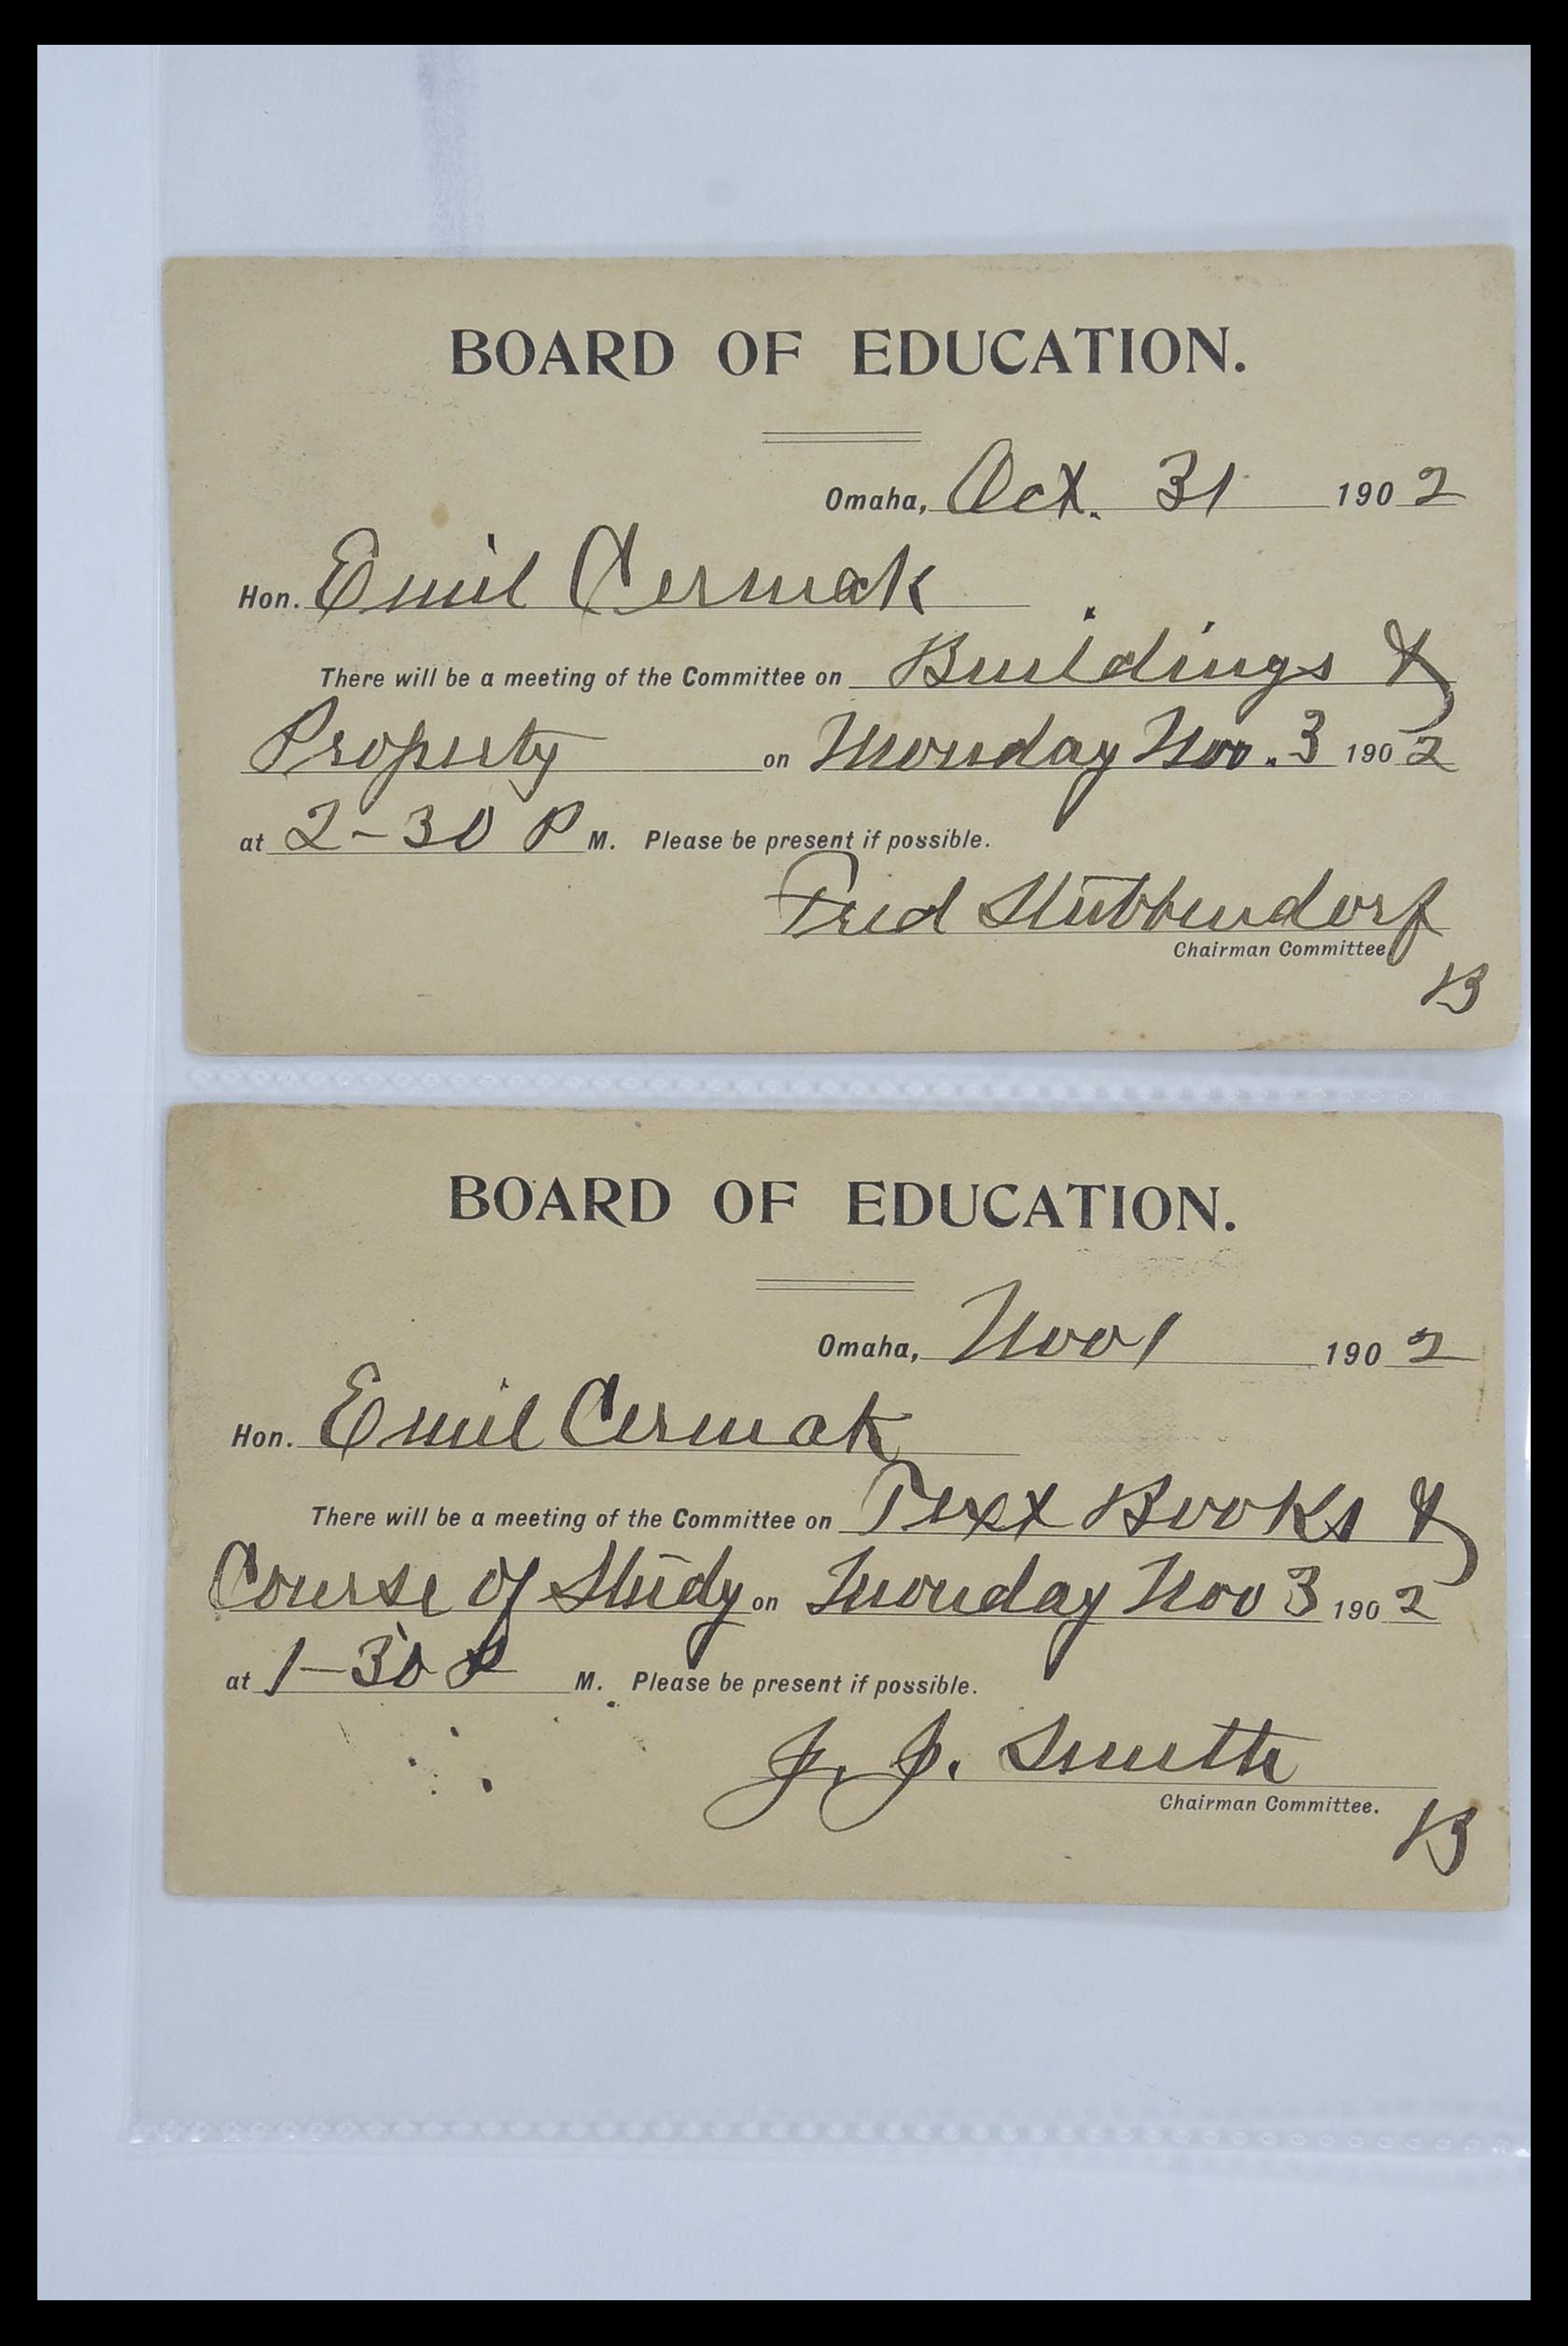 BOARD OF EDUCATION.
Omaha, Oct. 31 1902
Hon. Emil Cermak
There will be a meeting of the Committee on Buildings &
Property on Monday Nov. 3 1902
at 2-30 P M. Please be present if possible.
Fred Stubbendorf
Chairman Committee
B
BOARD OF EDUCATION.
Omaha, Nov 1 1902
Hon. Emil Cermak
There will be a meeting of the Committee on Text Books &
Course of Study on Monday Nov 3 1902
at 1-30 P M. Please be present if possible.
J. J. Smith
Chairman Committee.
B